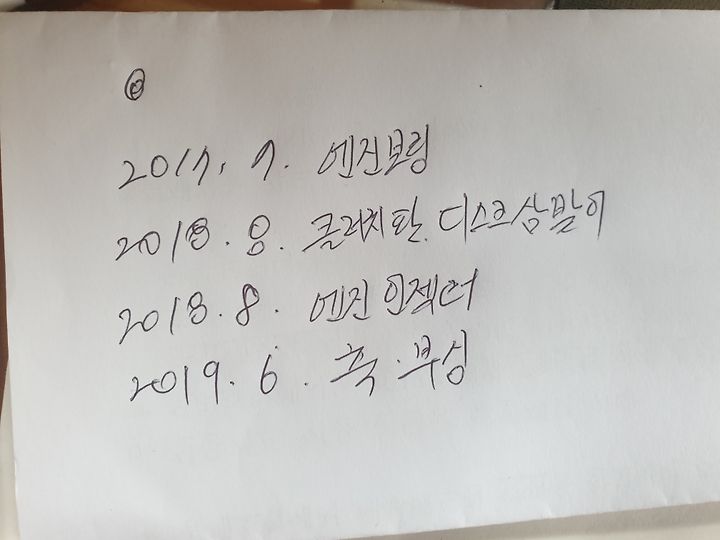 2017. 7. 엔진보링
2018. 8. 클러치판. 디스크삼발이
2018. 8. 엔진 인젝터
2019. 6. 훅. 부싱